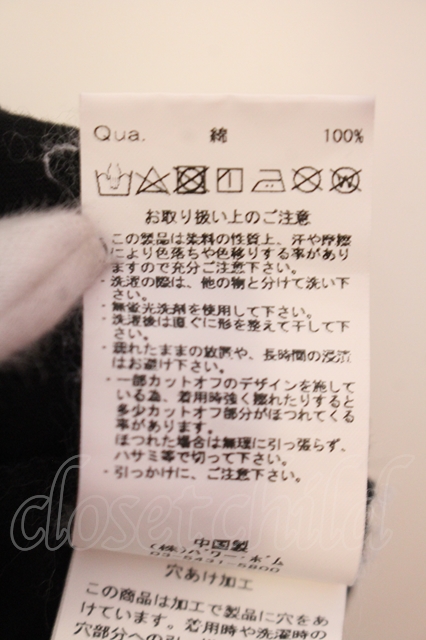 Qua. 綿 100%
お取り扱い上のご注意
・この製品は染料の性質上、汗や摩擦
により色落ちや色移りする事があり
ますので充分ご注意下さい。
・洗濯の際は、他の物と分けて洗い下
さい。
・無蛍光洗剤を使用して下さい。
・洗濯後は直ぐに形を整えて干して下
さい。
・濡れたままの放置や、長時間の浸漬
はお避け下さい。
・一部カットオフのデザインを施して
いる為、着用時強く擦れたりすると
多少カットオフ部分がほつれてくる
事があります。
ほつれた場合は無理に引っ張らず、
ハサミ等で切って下さい。
・引っかけに、ご注意下さい。
closet child
中国製
(株)パワー・ボム
03-5431-5800
穴あけ加工
この商品は加工で製品に穴をあ
けています。着用時や洗濯時の
穴部分への引